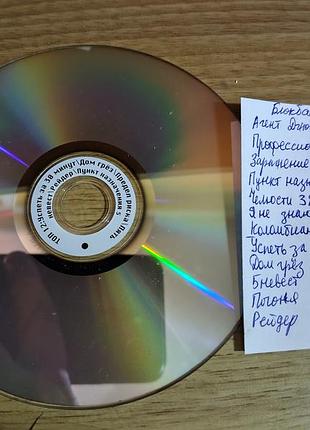 ТОП 12:Успеть за 30 минут\Дом грёз\Предел риска\Пять
невест\Рейдер\Пункт назначения 5
Блокба
Агент Джо
Профессио
Заражение
Пунктназн
Челюсти 3
Я не знаю
Колумбиан
Успеть за
Дом грёз
5 невест
Погоня
Рейдер